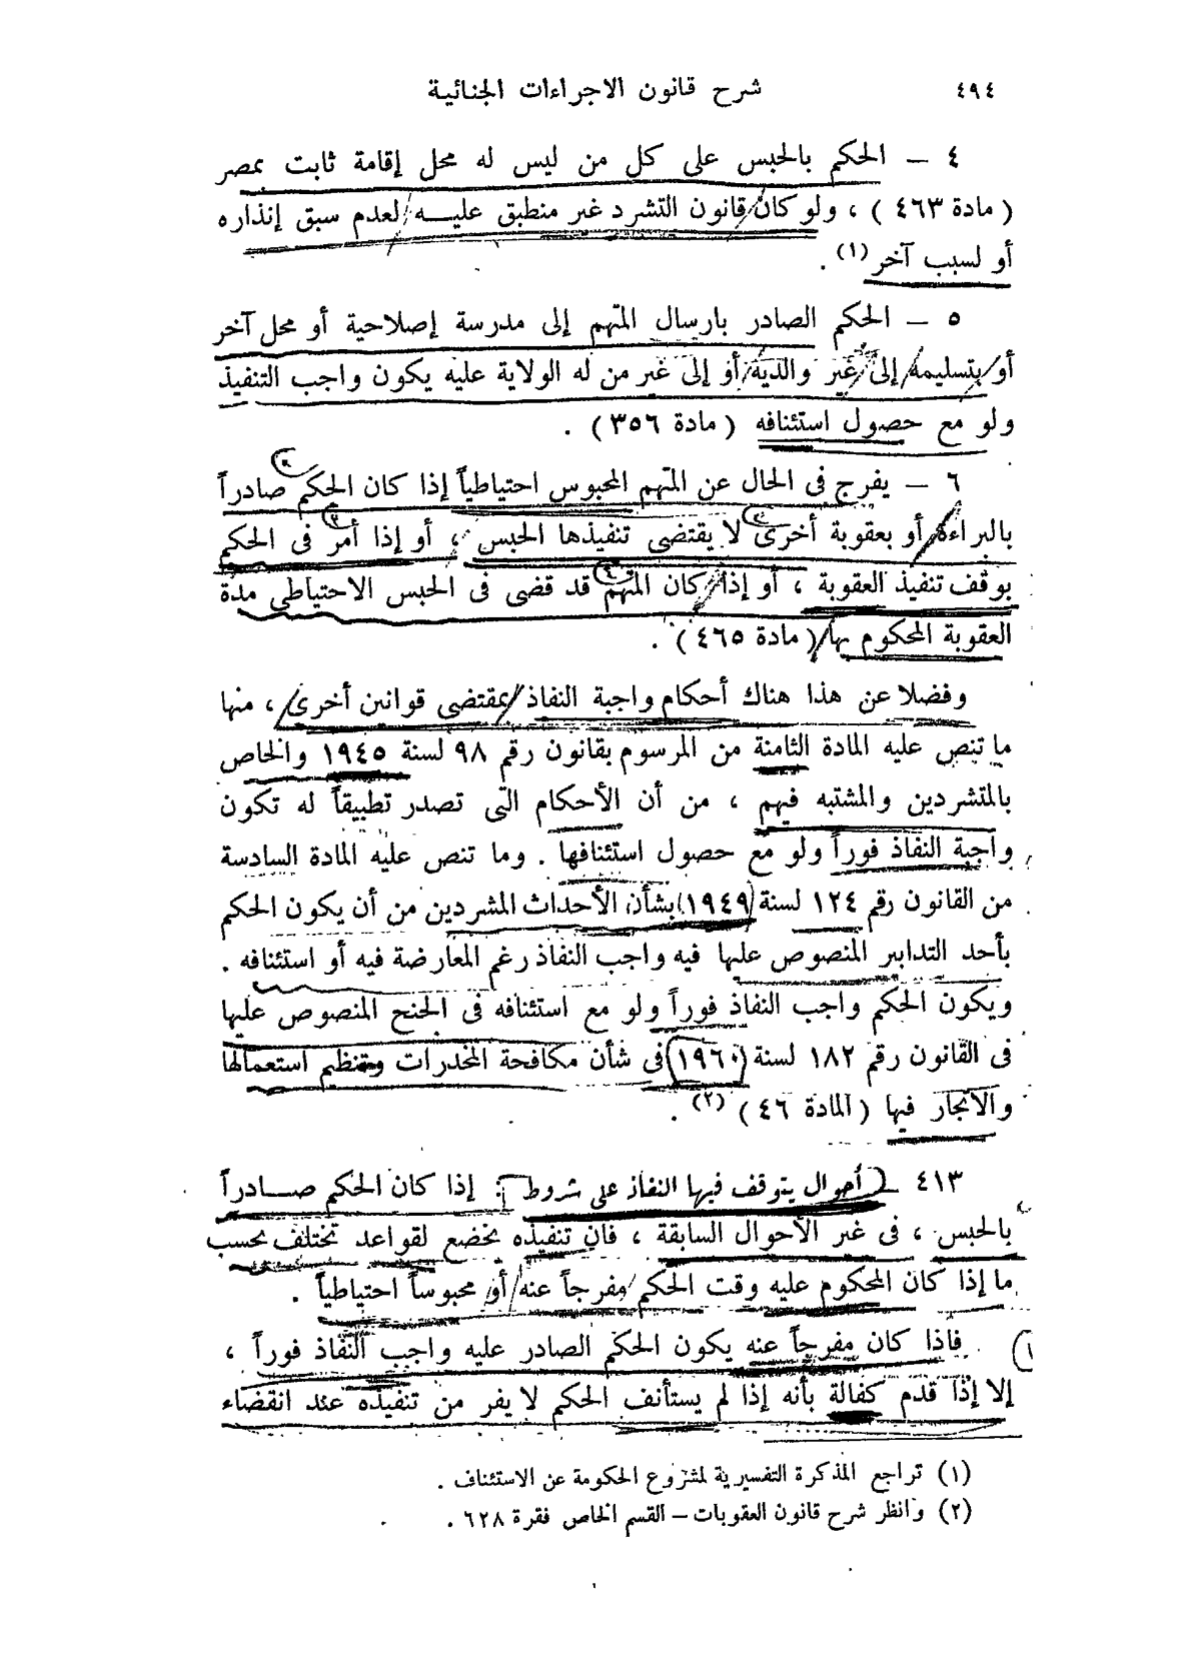 ٤٩٤ شرح قانون الاجراءات الجنائية
٤ — الحكم بالحبس على كل من ليس له محل إقامة ثابت بمصر
( مادة ٤٦٣ ) ، ولو كان قانون التشرد غير منطبق عليه لعدم سبق إنذاره
أو لسبب آخر (١) .
٥ — الحكم الصادر بارسال المتهم إلى مدرسة إصلاحية أو محل آخر
أو بتسليمه إلى غير والديه أو إلى غير من له الولاية عليه يكون واجب التنفيذ
ولو مع حصول استئنافه ( مادة ٣٥٦ ) .
٦ — يفرج فى الحال عن المتهم المحبوس احتياطياً إذا كان الحكم صادراً
بالبراءة أو بعقوبة أخرى لا يقتضى تنفيذها الحبس ، أو إذا أمر فى الحكم
بوقف تنفيذ العقوبة ، أو إذا كان المتهم قد قضى فى الحبس الاحتياطى مدة
العقوبة المحكوم بها ( مادة ٤٦٥ ) .
وفضلا عن هذا هناك أحكام واجبة النفاذ بمقتضى قوانين أخرى ، منها
ما تنص عليه المادة الثامنة من المرسوم بقانون رقم ٩٨ لسنة ١٩٤٥ والخاص
بالمتشردين والمشتبه فيهم ، من أن الأحكام التى تصدر تطبيقاً له تكون
واجبة النفاذ فوراً ولو مع حصول استئنافها . وما تنص عليه المادة السادسة
من القانون رقم ١٢٤ لسنة (١٩٤٩) بشأن الأحداث المشردين من أن يكون الحكم
بأحد التدابير المنصوص عليها فيه واجب النفاذ رغم المعارضة فيه أو استئنافه .
ويكون الحكم واجب النفاذ فوراً ولو مع استئنافه فى الجنح المنصوص عليها
فى القانون رقم ١٨٢ لسنة (١٩٦٠) فى شأن مكافحة المخدرات وتنظيم استعمالها
والاتجار فيها (المادة ٤٦ ) (٢) .
٤١٣ — أحوال يتوقف فيها النفاذ على شروط : إذا كان الحكم صادراً
بالحبس ، فى غير الأحوال السابقة ، فان تنفيذه يخضع لقواعد تختلف بحسب
ما إذا كان المحكوم عليه وقت الحكم مفرجاً عنه أو محبوساً احتياطياً .
فاذا كان مفرجاً عنه يكون الحكم الصادر عليه واجب النفاذ فوراً ،
إلا إذا قدم كفالة بأنه إذا لم يستأنف الحكم لا يفر من تنفيذه عند انقضاء
(١) تراجع المذكرة التفسيرية لمشروع الحكومة عن الاستئناف .
(٢) وانظر شرح قانون العقوبات — القسم الخاص فقرة ٦٢٨ .